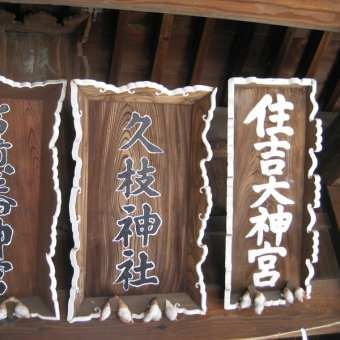 住吉大神宮
久枝神社
神宮